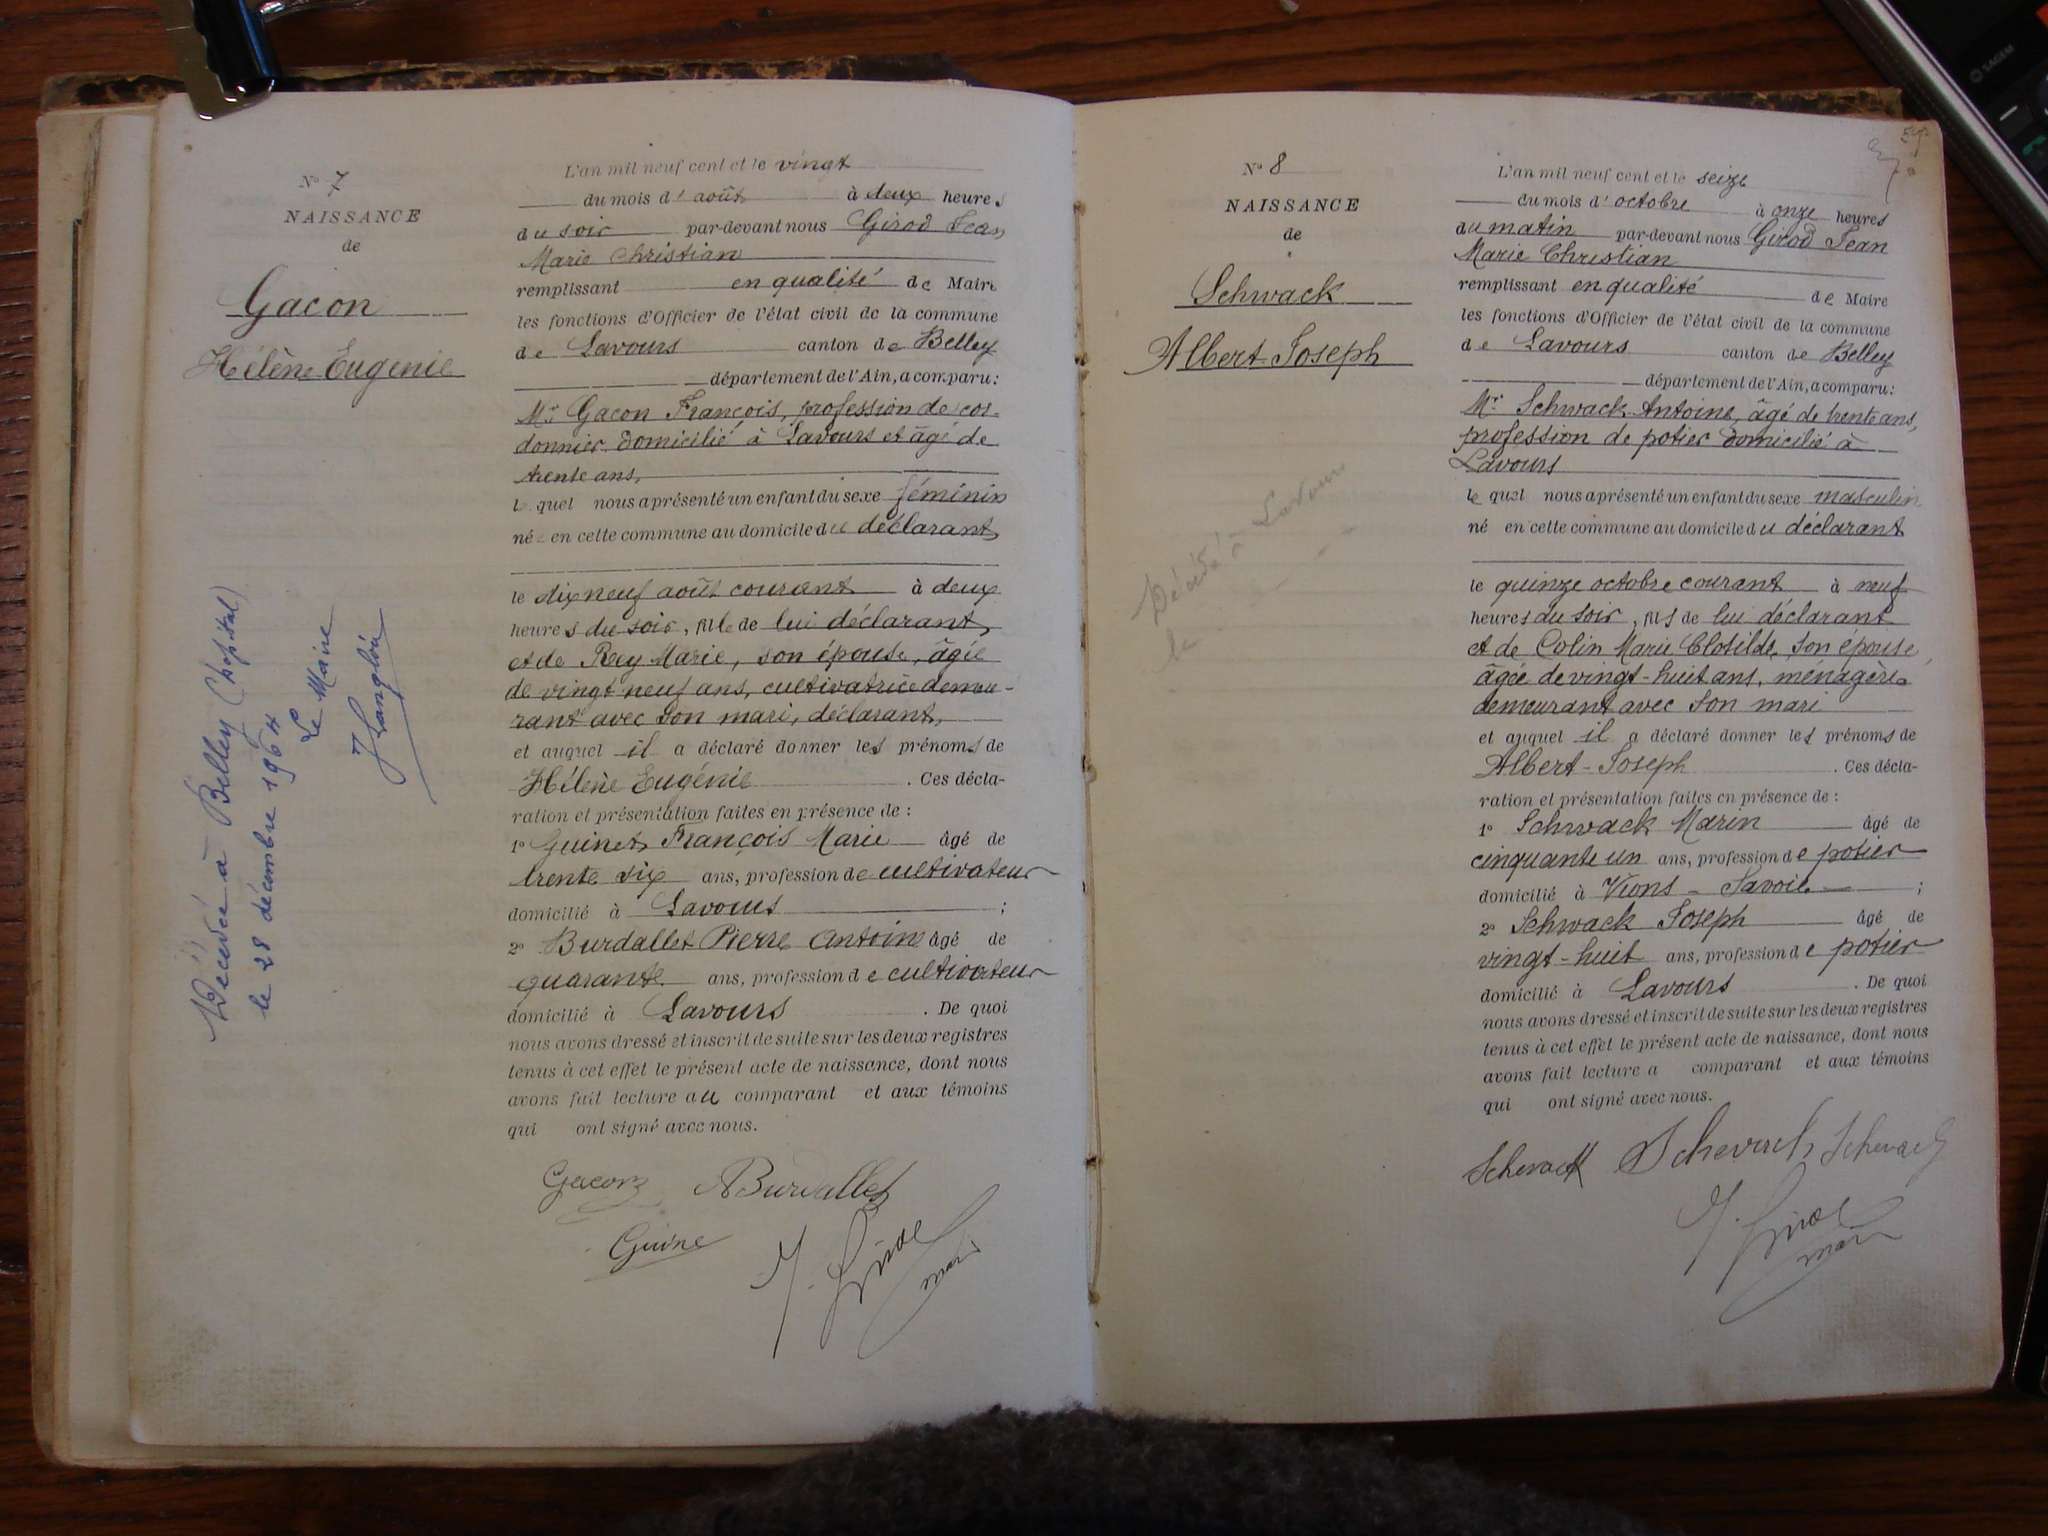 N° 7
NAISSANCE
de
Gacon
Hélène Eugénie
Décédée à Belley (hôpital)
le 28 décembre 1964
Le Maire
L'an mil neuf cent et le vingt
du mois d'août à deux heures
du soir par-devant nous Girod Jean
Marie Christian
remplissant en qualité de Maire
les fonctions d'Officier de l'état civil de la commune
de Lavours canton de Belley
département de l'Ain, a comparu:
Mr Gacon François, profession de cor-
donnier domicilié à Lavours et âgé de
trente ans,
lequel nous a présenté un enfant du sexe féminin
né en cette commune au domicile du déclarant,
le dix neuf août courant à deux
heures du soir, fille de lui déclarant,
et de Rey Marie, son épouse, âgée
de vingt neuf ans, cultivatrice demeu-
rant avec son mari, déclarant,
et auquel il a déclaré donner les prénoms de
Hélène Eugénie. Ces décla-
ration et présentation faites en présence de :
1° Guinet François Marie âgé de
trente six ans, profession de cultivateur
domicilié à Lavours ;
2° Burdallet Pierre Antoine âgé de
quarante ans, profession de cultivateur
domicilié à Lavours. De quoi
nous avons dressé et inscrit de suite sur les deux registres
tenus à cet effet le présent acte de naissance, dont nous
avons fait lecture au comparant et aux témoins
qui ont signé avec nous.
Gacon ABurdallet
Guine
J. Girod
maire
N° 8
NAISSANCE
de
Schwack
Albert Joseph
Décédé à Lavours
le
L'an mil neuf cent et le seize
du mois d'octobre à onze heures
du matin par-devant nous Girod Jean
Marie Christian
remplissant en qualité de Maire
les fonctions d'Officier de l'état civil de la commune
de Lavours canton de Belley
département de l'Ain, a comparu:
Mr Schwack Antoine, âgé de trente ans,
profession de potier domicilié à
Lavours
lequel nous a présenté un enfant du sexe masculin
né en cette commune au domicile du déclarant
le quinze octobre courant à neuf
heures du soir, fils de lui déclarant
et de Colin Marie Clotilde, son épouse,
âgée de vingt-huit ans, ménagère
demeurant avec son mari
et auquel il a déclaré donner les prénoms de
Albert-Joseph. Ces décla-
ration et présentation faites en présence de :
1° Schwack Marin âgé de
cinquante un ans, profession de potier
domicilié à Vions - Savoie ;
2° Schwack Joseph âgé de
vingt-huit ans, profession de potier
domicilié à Lavours. De quoi
nous avons dressé et inscrit de suite sur les deux registres
tenus à cet effet le présent acte de naissance, dont nous
avons fait lecture a comparant et aux témoins
qui ont signé avec nous.
Schevack Schevach Schevack
J. Girod
maire
SAGEM